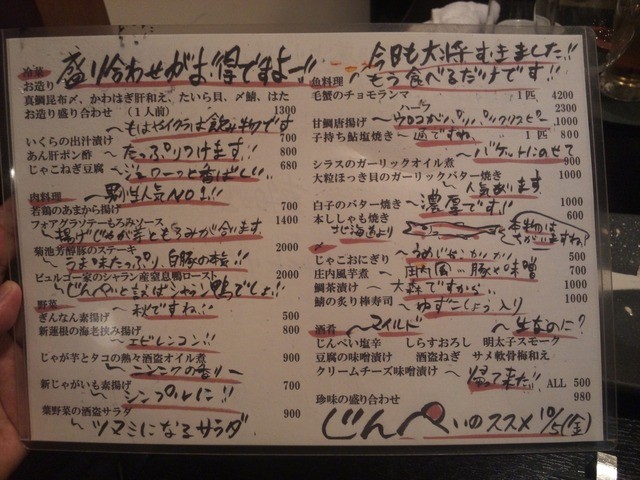 盛り合わせがお得ですよー!!
冷菜
お造り
真鯛昆布〆、かわはぎ肝和え、たいら貝、〆鯖、はた
お造り盛り合わせ （１人前） 1300
～もはやイクラは飲み物です
いくらの出汁漬け 700
～たっぷりつけます!!
あん肝ポン酢 800
じゃこねぎ豆腐 680
～ジュワーッと香ばしい!!
肉料理 ～男性人気NO1!!
若鶏のあまから揚げ 700
フォアグラソテーもろみソース 1400
～揚げじゃが芋ともろみが合います
菊池芳醇豚のステーキ 2000
～うま味たっぷり、白豚の本意!!
ビュルゴー家のシャラン産窒息鴨ロースト 2000
～じんぺいと言えばシャラン鴨でしょ!!
野菜 ～秋ですね!!
ぎんなん素揚げ 500
新蓮根の海老挟み揚げ 800
～エビレンコン!!
じゃが芋とタコの熱々酒盗オイル煮 900
～ニンニクの香り～
新じゃがいも素揚げ 700
～シンプルに!!
葉野菜の酒盗サラダ 900
～ツマミになるサラダ
今日も大将むきました!!
もう食べるだけです!!
魚料理
毛蟹のチョモランマ １匹 4200
ハーフ 2300
甘鯛唐揚げ ～ウロコがパリッパリックリスピー 1000
子持ち鮎塩焼き ～旬ですね １匹 800
～バケットにのせて
シラスのガーリックオイル煮 900
大粒ほっき貝のガーリックバター焼き 1000
～人気あります
白子のバター焼き ～濃厚です!! 1000
本ししゃも焼き 600
北海道より
本物はちがいますね!
〆 ～うめじゃがガリ
じゃこおにぎり 500
庄内風芋煮 ～庄内風…豚×味噌 700
鯛茶漬け ～大森ですから 1000
鯖の炙り棒寿司 ～ゆずこしょう入り 1000
酒肴 ～マイルド ～生なのに?
じんぺい塩辛 しらすおろし 明太子スモーク
豆腐の味噌漬け 酒盗ねぎ サメ軟骨梅和え
クリームチーズ味噌漬け ～帰って来た!! ALL 500
珍味の盛り合わせ 980
じんぺいのススメ 10/5(金)